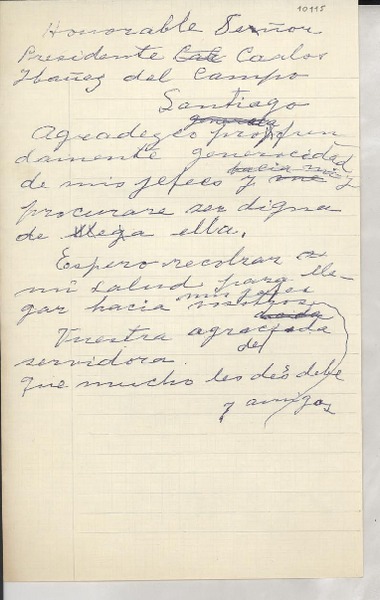 10115
Honorable Señor
Presidente Carlos
Ibáñez del Campo
Santiago
Agradezco profun
damente generocidad
de mis jefes y
hacia mi y
procurare ser digna
de ella.
Espero recobrar
mi salud para lle-
gar hacia vosotros
mis jefes
Vuestra agraciada
servidora
que mucho les debe
y amigos